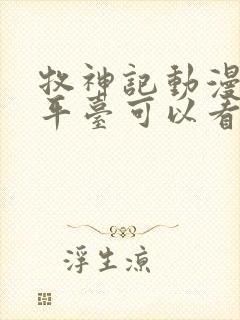 牧神記動漫
平臺可以看
浮生涼